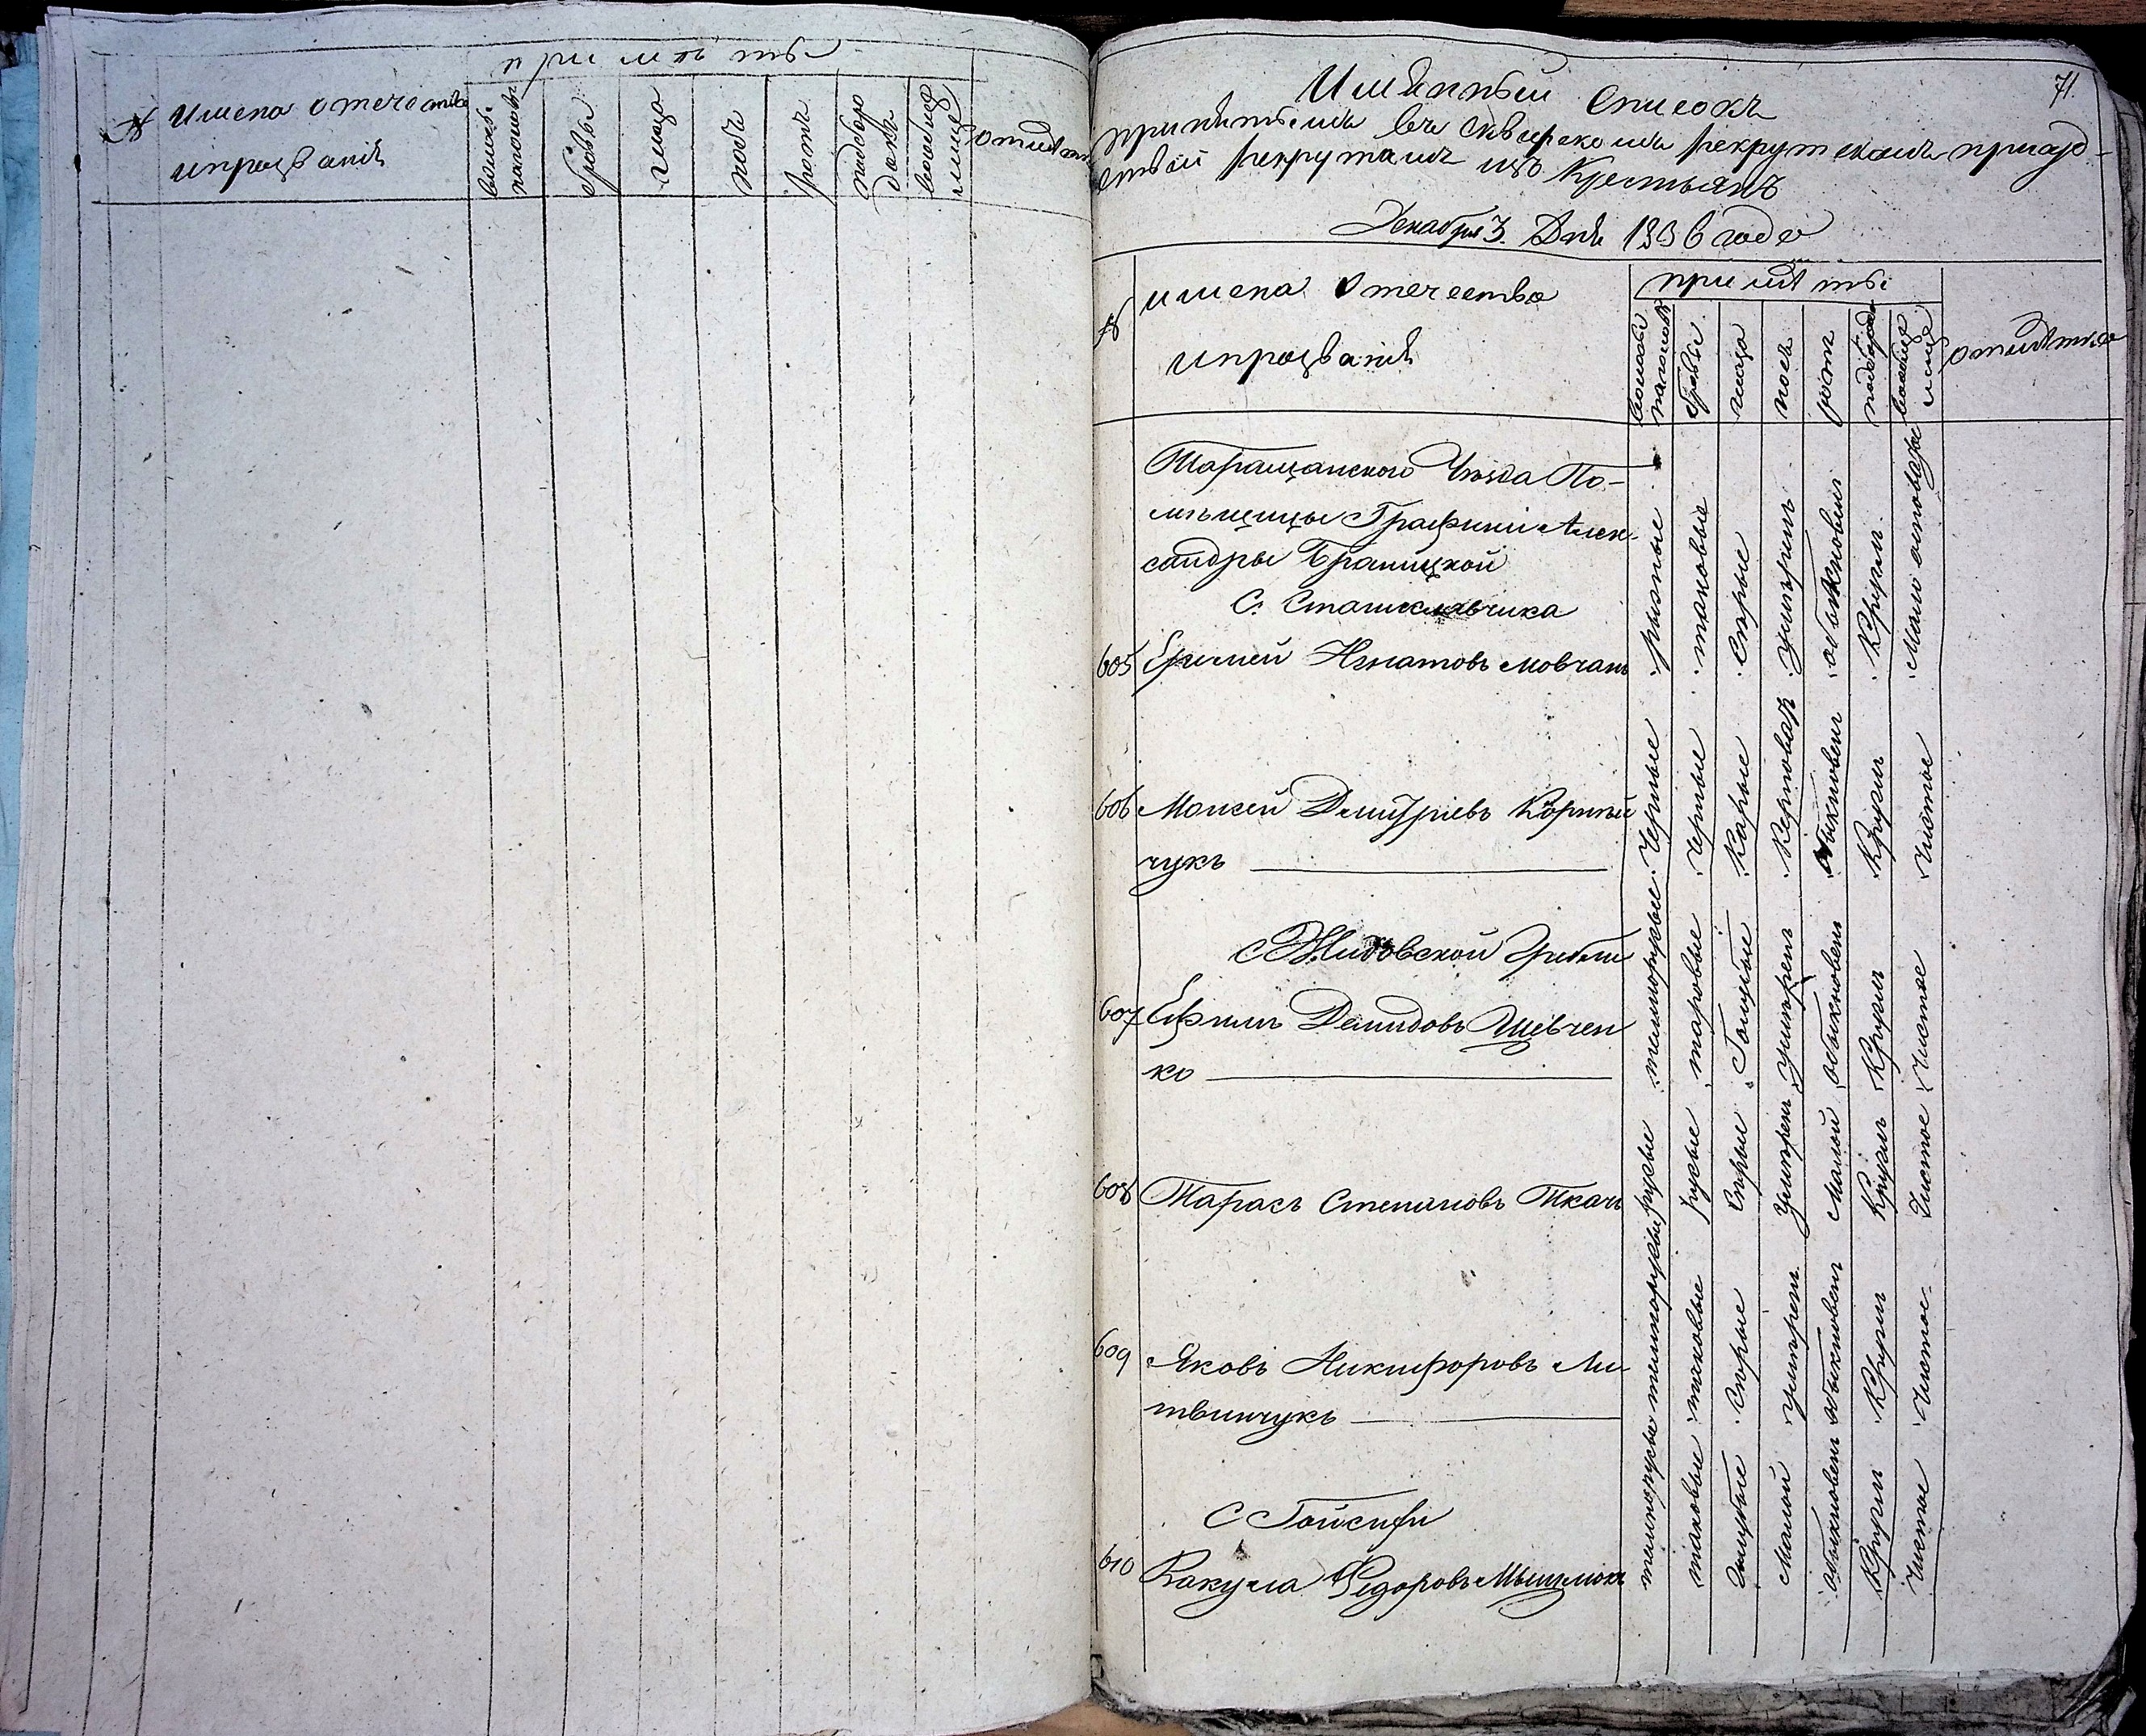 приметы
№
Имена отечества
ипрозваніе
волосы
наголове
бровы
глаза
носъ
ротъ
подборо
докъ
вообще
лице
отметка
71.
Именный Списокъ
принятымъ въ Сквирскомъ рекрутскомъ присуд-
ствіи рекрутамъ изъ Крестьянъ
Декабря 3. Дня 1836 года
№
имена отечества
ипрозваніе
приметы
волосы
наголове
бровы
глаза
носъ
ротъ
подбородо
вообще
лице
отметка
Таращанского Уѣзда По-
мѣщицы Графини Алек-
сандры Браницкой
С. Станиславчика
605 Ефимей Игнатовъ Мовчанъ рыжіе таковые Серые умерен обыкновен Кругл Мало оспова
606 Моисей Дмитріевъ Корней
чукъ Черные Черные Карые Керповат обыкновен Кругл Чистое
С Жидовской Гребли
607 Ефимъ Демидовъ Шевчен
ко темнорусые таковые Голубые умерен обыкновен Кругл Чистое
608 Тарасъ Степановъ Ткачъ русые русые Серые Умерен Малой Кругл Чистое
609 Яковъ Никифоровъ Ли
твинчукъ темнорусые таковые Серые умерен обыкновен Кругл Чистое
С Тойсихи
610 Вакула Федоровъ темнорусые таковые Голубые Малой обыкновен Кругл Чистое